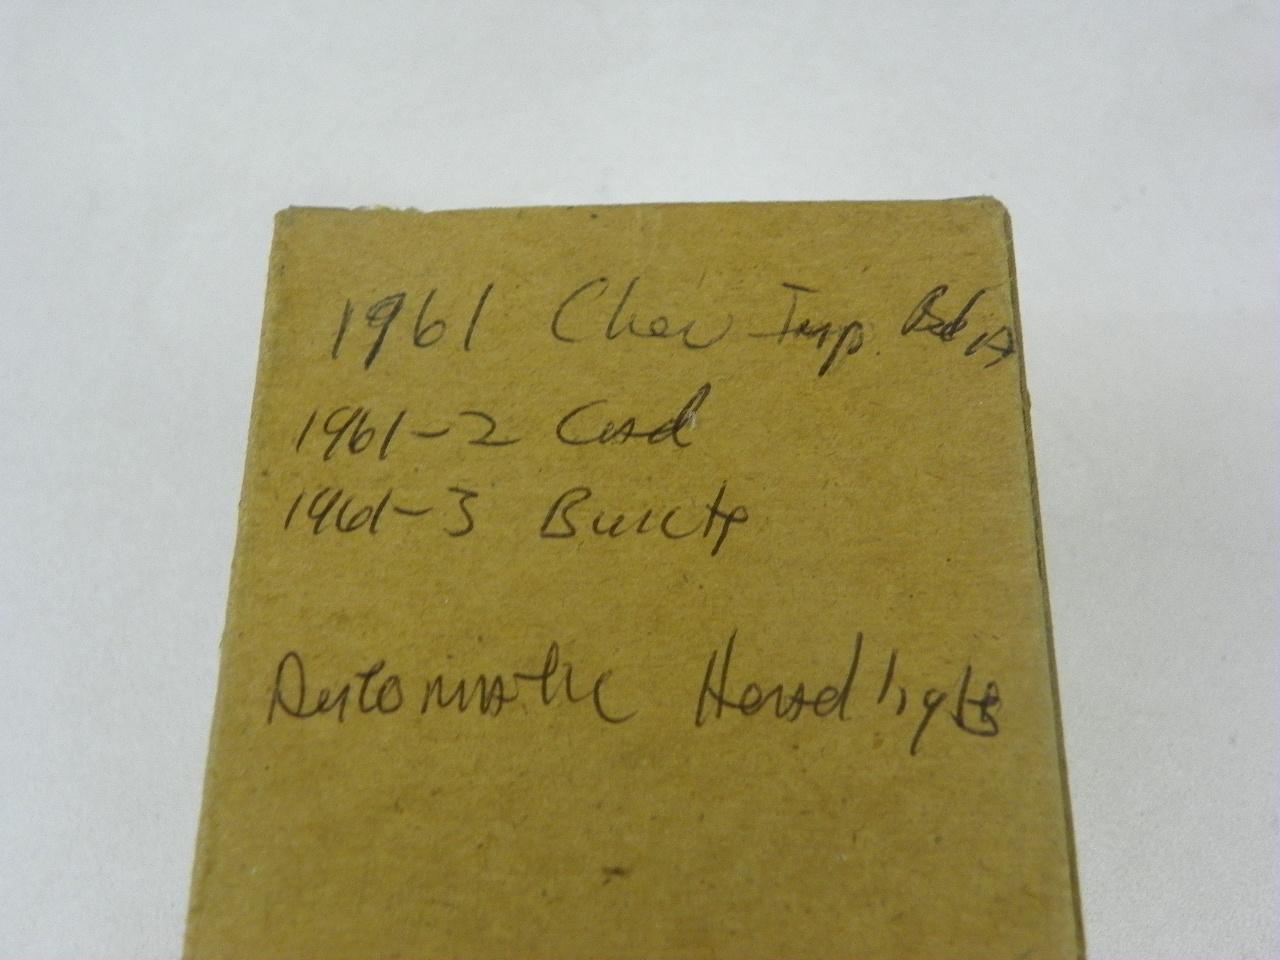 1961 Chev Imp. Bel A
1961-2 Cad
1961-3 Buick
Automatic Headlights